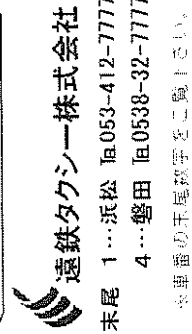 遠鉄タクシー株式会社
末尾 1…浜松 ℡053-412-7777
4…磐田 ℡0538-32-7777
※車番の末尾数字をご覧下さい。